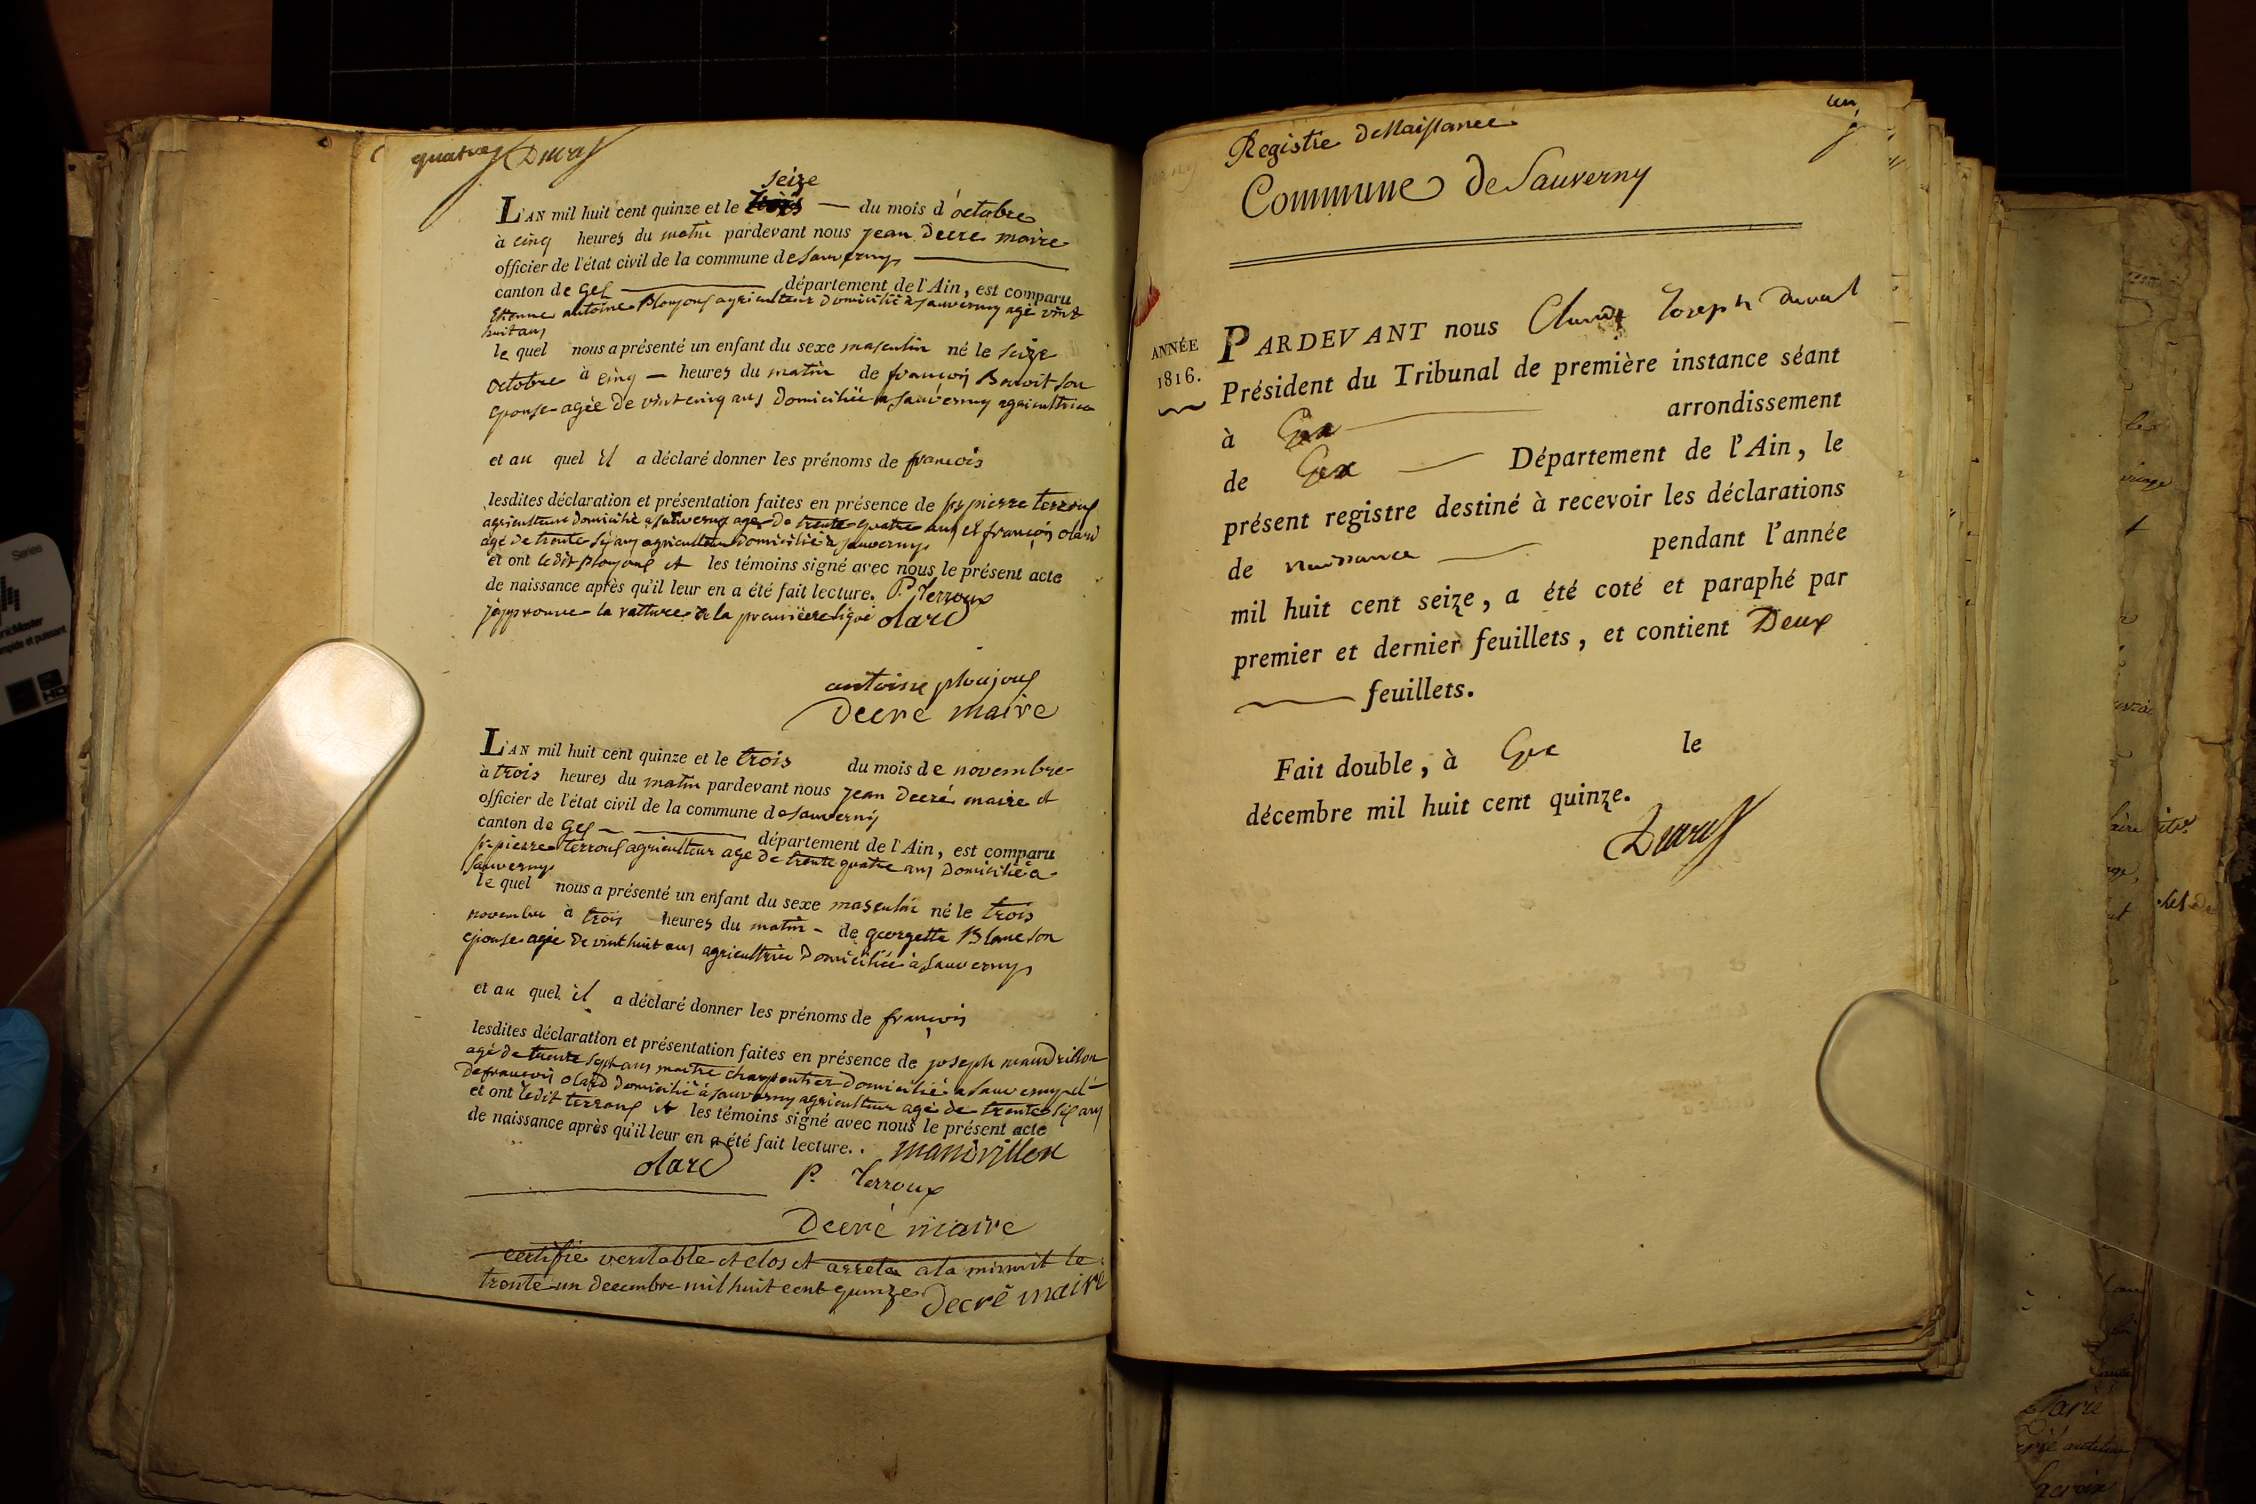 quatre Duval
seize
L'AN mil huit cent quinze et le trois — du mois d'octobre
à cinq heures du matin pardevant nous jean Decré maire
officier de l'état civil de la commune de Sauverny
canton de Gex département de l'Ain, est comparu
Etienne antoine Ploujoux agriculteur Domicilié a Sauverny agé vint
huit ans
le quel nous a présenté un enfant du sexe masculin né le seize
octobre à cinq — heures du matin de françois Benoit son
epouse agée De vint cinq ans Domiciliée a Sauverny agricultrice
et au quel il a déclaré donner les prénoms de françois
lesdites déclaration et présentation faites en présence de pierre terroux
agriculteur domicilié a sauverny age De trente quatre ans et françois olard
agé de trente six ans agriculteur Domicilié a Sauverny
et ont ledit Ploujoux et les témoins signé avec nous le présent acte
de naissance après qu'il leur en a été fait lecture. P. Terroux
j'approuve laratture de la premiere ligne olard
antoine ploujoux
Decré maire
L'AN mil huit cent quinze et le trois du mois de novembre
à trois heures du matin pardevant nous jean Decré maire et
officier de l'état civil de la commune de Sauverny
canton de Gex — département de l'Ain, est comparu
pierre terroux agriculteur age De trente quatre ans Domicilié a
Sauverny
le quel nous a présenté un enfant du sexe masculin né le trois
novembre à trois heures du matin - de georgette Blanc son
epouse agée De vint huit ans agricultrice Domiciliée à Sauverny
et au quel il a déclaré donner les prénoms de françois
lesdites déclaration et présentation faites en présence de joseph mandrillon
agé de trente sept ans maitre charpentier Domicilié a Sauverny et
De françois olard domicilié à Sauverny agriculteur agé de trente six ans
et ont ledit terroux et les témoins signé avec nous le présent acte
de naissance après qu'il leur en a été fait lecture. . mandrillon
olard P. Terroux
Decré maire
certifié veritable et clos et arreté a la minuit le
trente un decembre mil huit cent quinze Decré maire
un
Registre de Naissance
Commune de Sauverny
ANNÉE
1816.
PARDEVANT nous Claude Joseph Duval
Président du Tribunal de première instance séant
à Gex arrondissement
de Gex — Département de l'Ain, le
présent registre destiné à recevoir les déclarations
de naissance — pendant l'année
mil huit cent seize, a été coté et paraphé par
premier et dernier feuillets, et contient Deux
feuillets.
Fait double, à Gex le
décembre mil huit cent quinze.
Duval